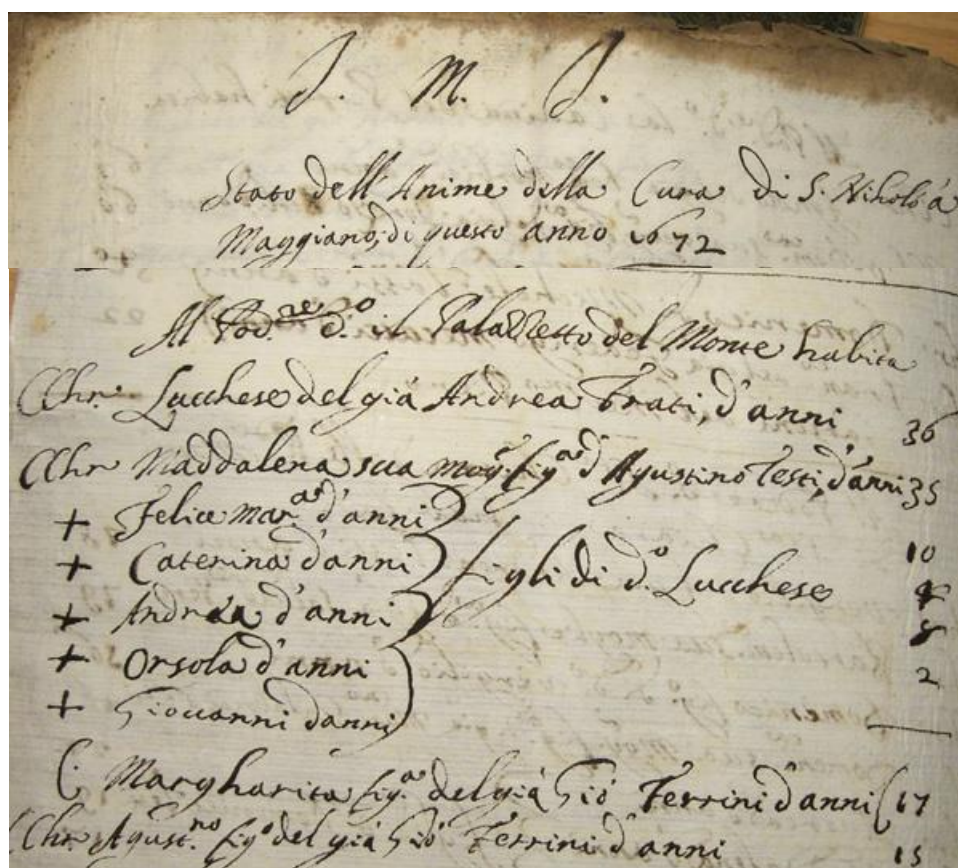 J. M. J.
Stato dell'Anime della Cura di S. Niholò à
Maggiano, di questo anno 1672
Al Pod.re d.o il Palazzetto del Monte habita
CChr. Lucchese del già Andrea Frati, d'anni 36
CChr Maddalena sua mog. fig.a d'Agustino Testi, d'anni 35
+ Felice Mar.a d'anni 10
+ Caterina d'anni
+ Andrea d'anni figli di d.o Lucchese 8
+ Orsola d'anni 2
+ Giovanni d'anni
C. Margharita fig.a del già Giò Ferrini d'anni 17
CChr Agust.no fig.o del già Giò Ferrini d'anni 15